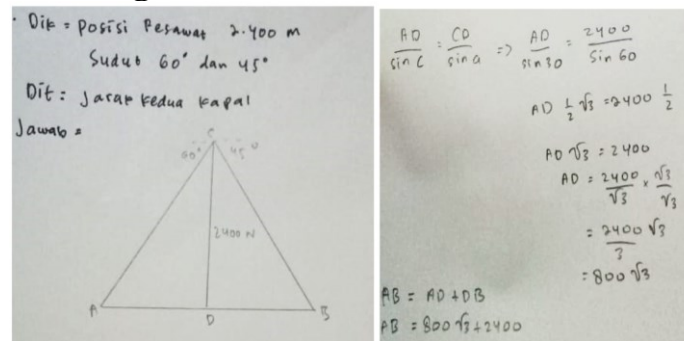 Dik = Posisi Pesawat 2.400 m
Sudut 60° dan 45°
Dit : Jarak kedua kapal
Jawab =
C
60° 45°
2400 M
A D B
AD/sin C = CD/sin a => AD/sin 30 = 2400/sin 60
AD 1/2 √3 = 2400 1/2
AD √3 = 2400
AD = 2400/√3 × √3/√3
= 2400/3 √3
= 800 √3
AB = AD + DB
AB = 800 √3 + 2400